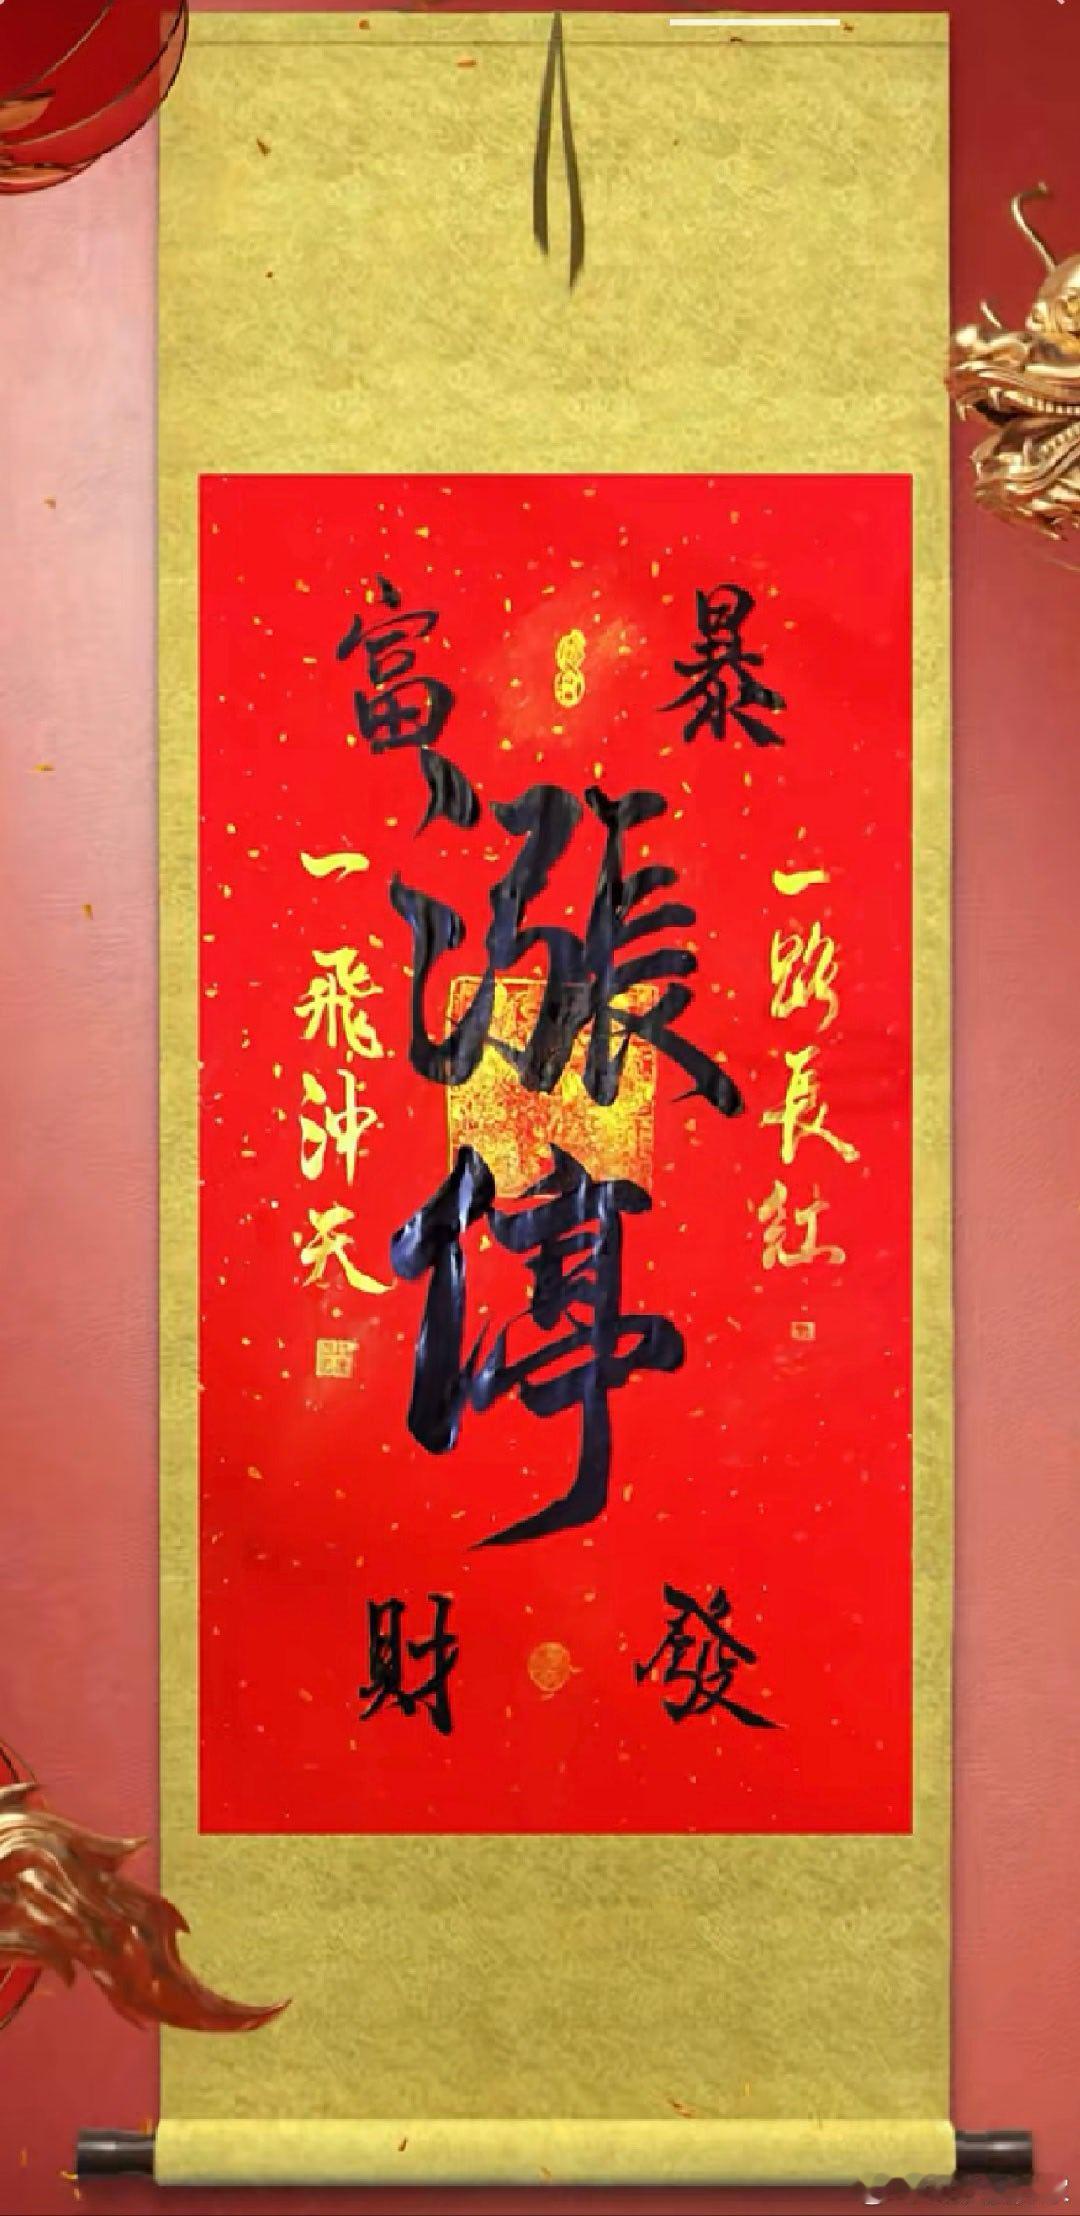 暴富
漲停
一路長紅
一飛沖天
發財